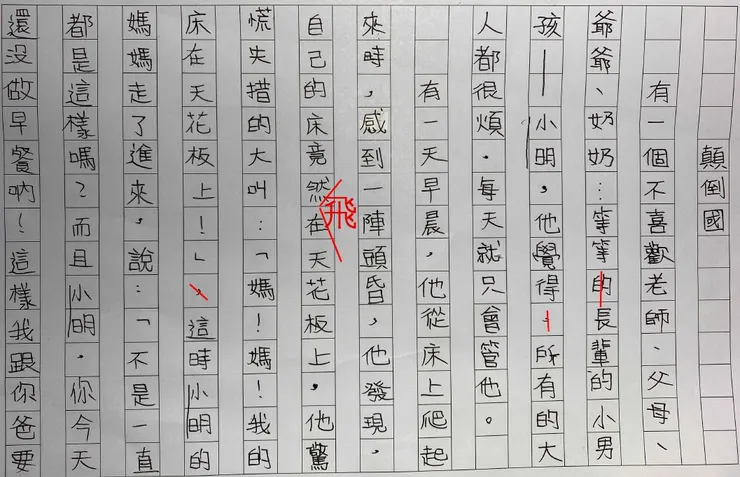 顛倒國
有一個不喜歡老師、父母、
爺爺、奶奶…等等的長輩的小男
孩—小明,他覺得,所有的大
人都很煩.每天就只會管他。
有一天早晨,他從床上爬起
來時,感到一陣頭昏,他發現,
自己的床竟然在天花板上,他驚
飛
慌失措的大叫:「媽!媽!我的
床在天花板上!」,這時小明的
媽媽走了進來,說:「不是一直
都是這樣嗎?而且小明.你今天
還没做早餐吶!這樣我跟你爸要